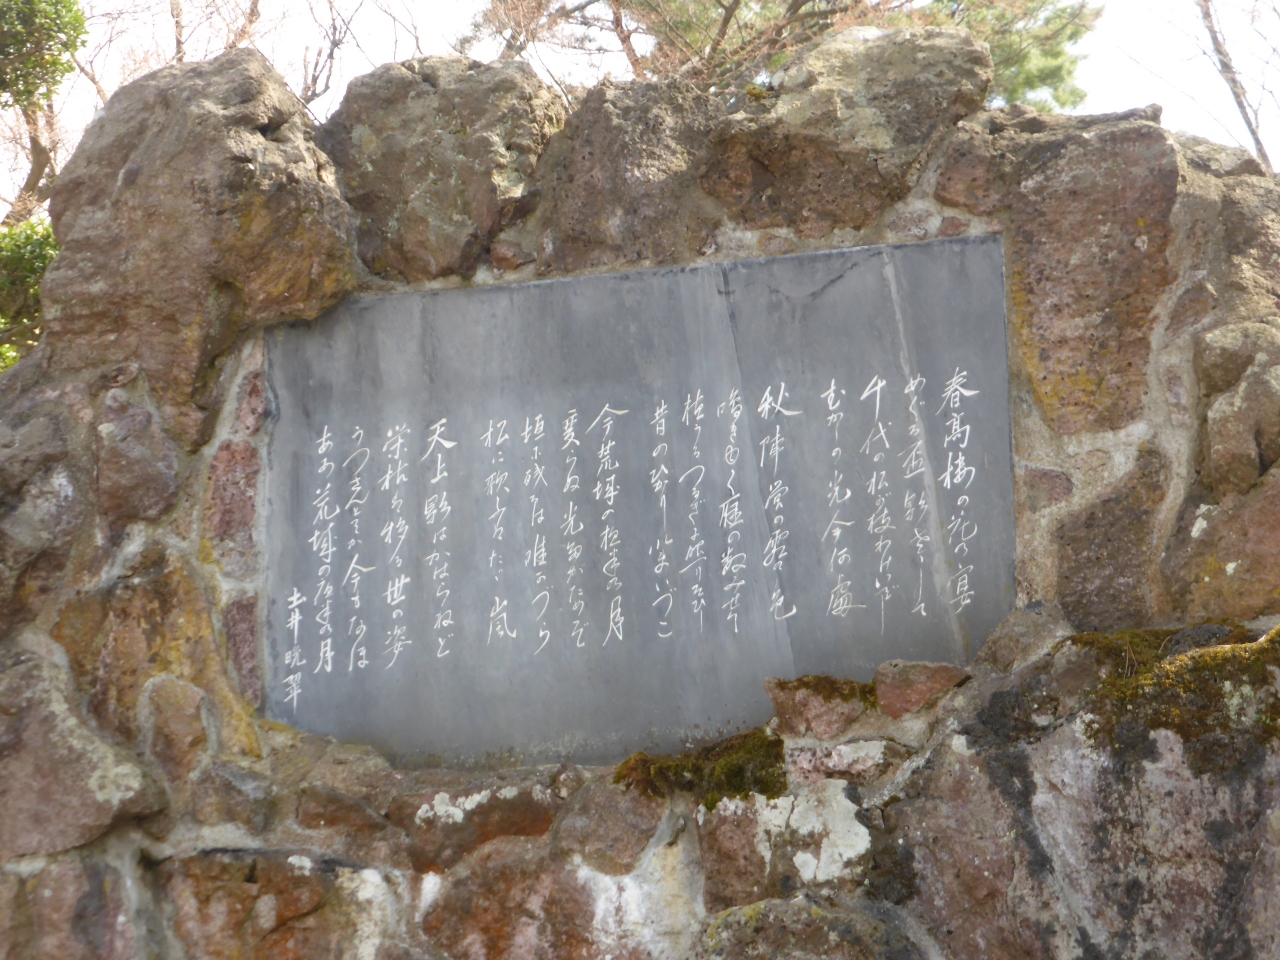 春高楼の花の宴
めぐる盃影さして
千代の松が枝わけいでし
むかしの光今何處
秋陣営の霜の色
鳴き行く雁の数みせて
植うるつるぎに照りそひし
昔のひかりいまいづこ
今荒城の夜半の月
変らぬ光たがためぞ
垣に残るは唯かつら
松に歌ふはただ嵐
天上影はかはらねど
栄枯は移る世の姿
うつさんとてか今もなほ
ああ荒城の夜半の月
土井晩翠